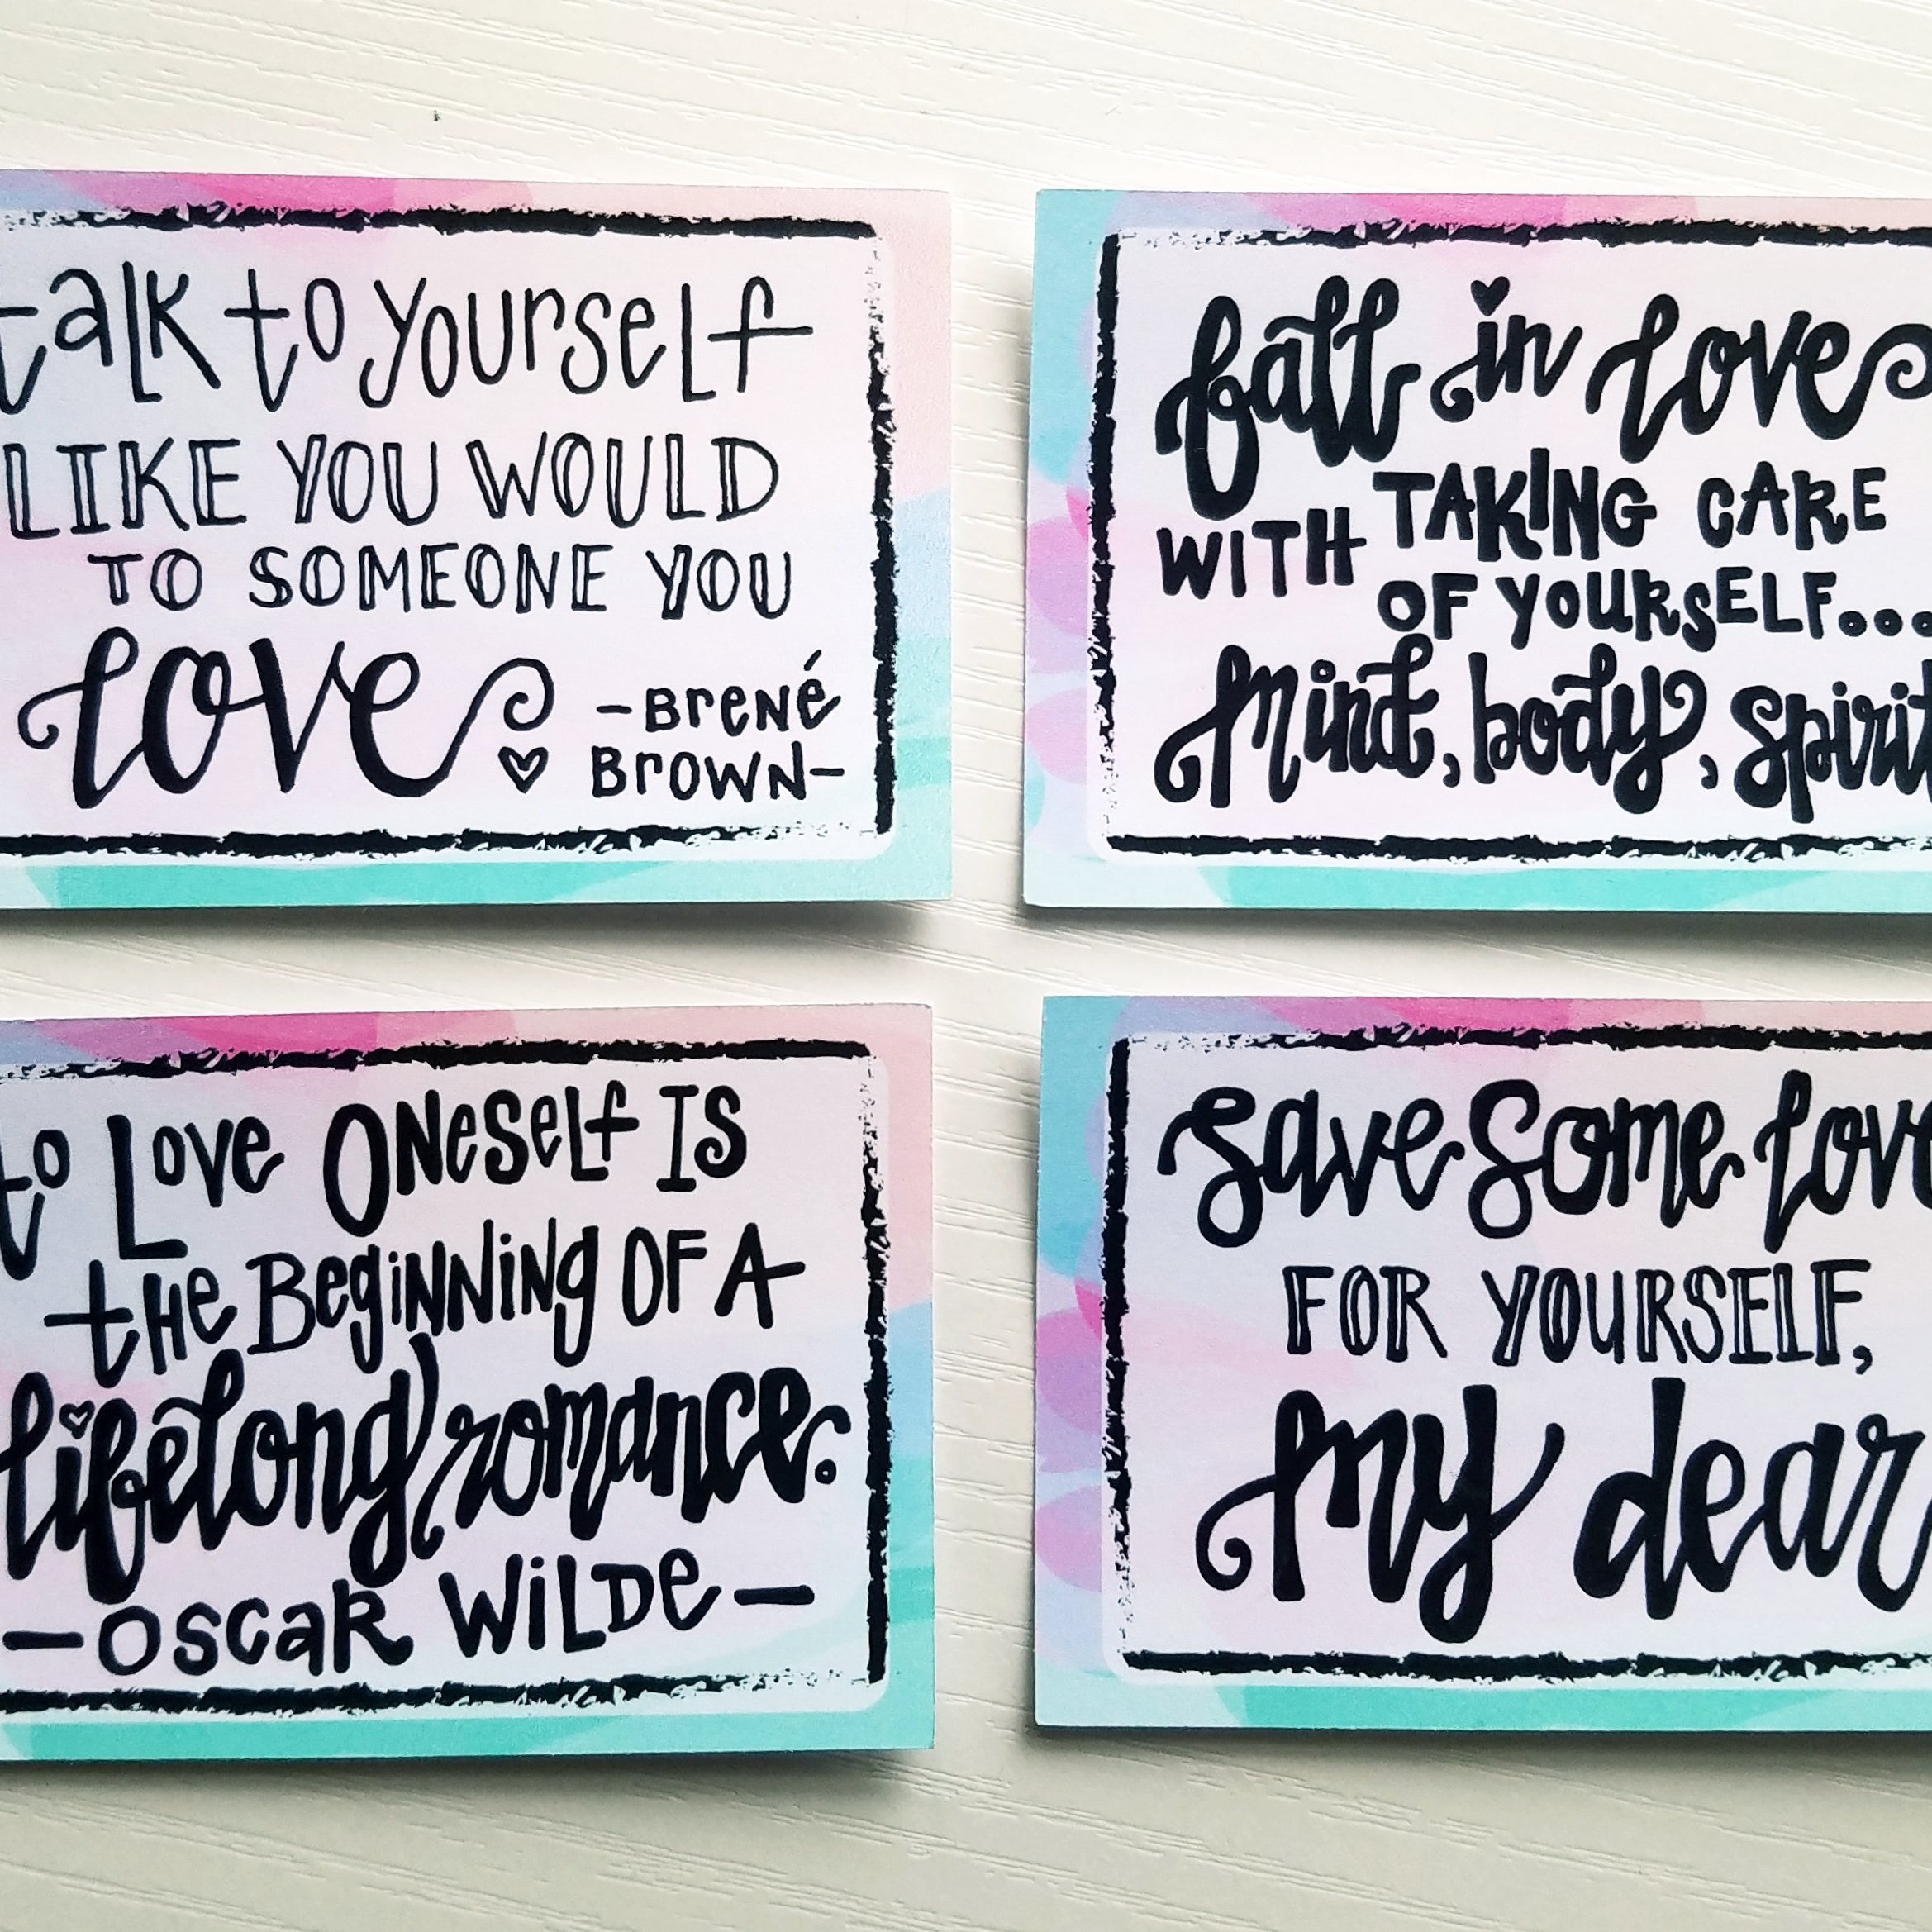 talk to yourself
LIKE YOU WOULD
TO SOMEONE YOU
love
-Brené
Brown-
fall in love
WITH TAKING CARE
OF YOURSELF...
mind, body, spirit
to Love Oneself Is
the Beginning OF A
lifelong romance.
-Oscar Wilde-
save some lov
FOR YOURSELF,
my dear